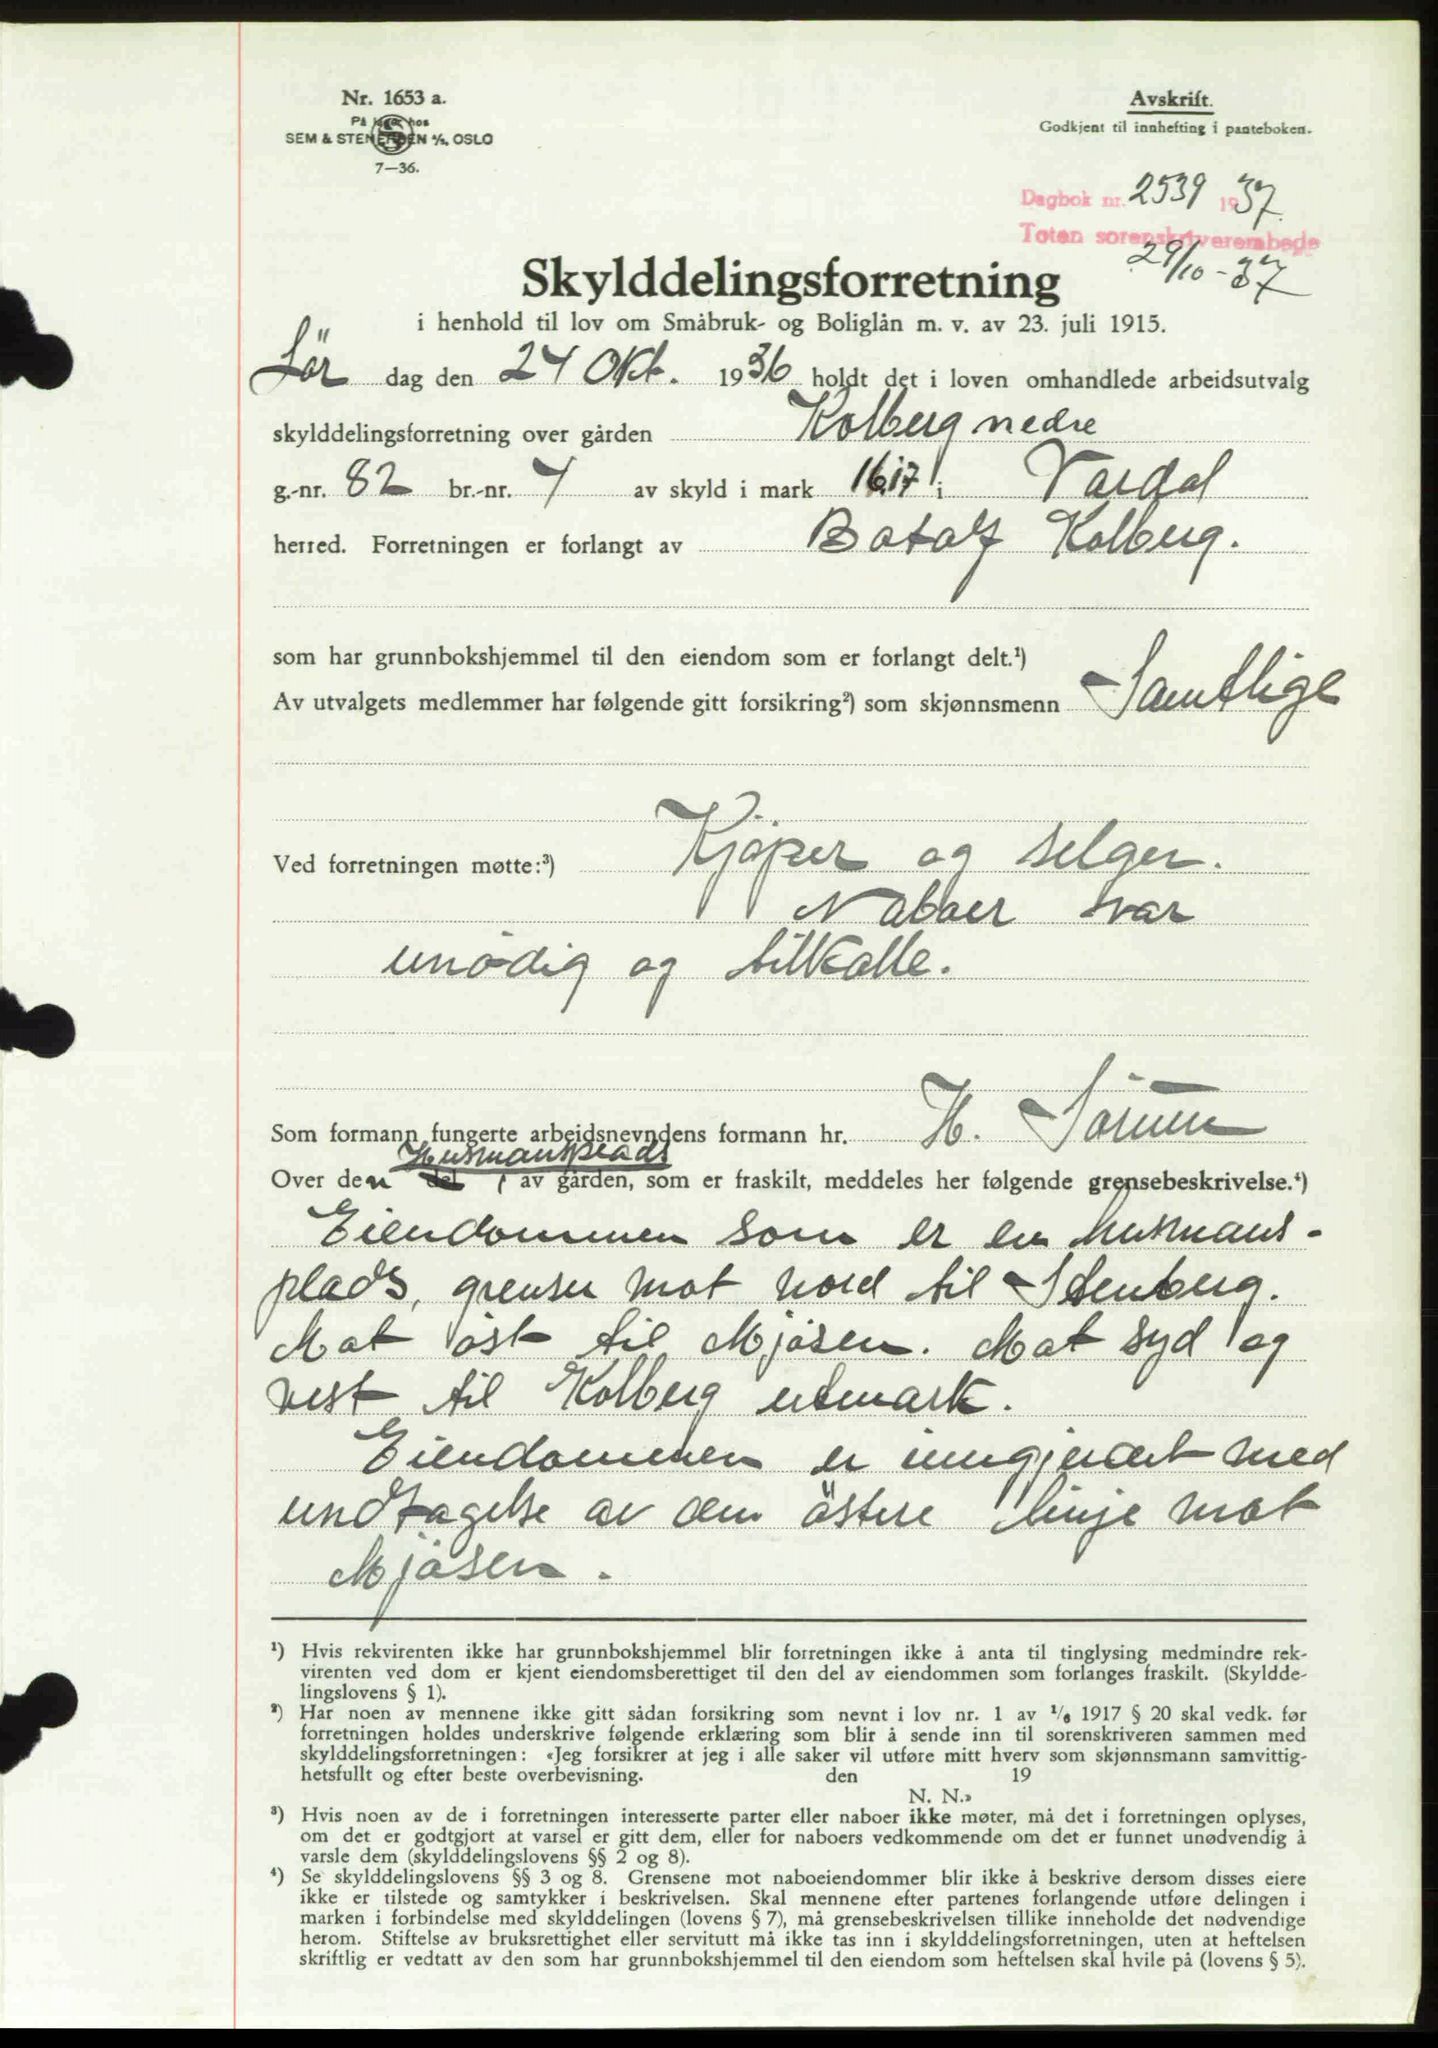 Nr. 1653 a.
På lager hos
SEM & STENERSEN A/S, OSLO
7—36.
Avskrift.
Godkjent til innhefting i panteboken.
Dagbok nr. 2539 1937.
Toten sorenskriverembede
29/10-37
Skylddelingsforretning
i henhold til lov om Småbruk- og Boliglån m. v. av 23. juli 1915.
Lör dag den 24 Okt. 1936 holdt det i loven omhandlede arbeidsutvalg
skylddelingsforretning over gården Kolberg nedre
g.-nr. 82 br.-nr. 4 av skyld i mark 16,17 i Vardal
herred. Forretningen er forlangt av Botolf Kolberg.
som har grunnbokshjemmel til den eiendom som er forlangt delt.¹)
Av utvalgets medlemmer har følgende gitt forsikring²) som skjønnsmenn Samtlige
Ved forretningen møtte:³) Kjöper og selger.
Naboer var
unödig og tilkalle.
Som formann fungerte arbeidsnevndens formann hr. H. Sörum
Husmansplads
Over den del, av gården, som er fraskilt, meddeles her følgende grensebeskrivelse.⁴)
Eiendommen som er en husmans-
plads, grenser mot nord til Stenberg.
Mot öst til Mjösen. Mot syd og
vest til Kolberg utmark.
Eiendommen er inngjerdet med
undtagelse av den östere linje mot
Mjösen.
¹) Hvis rekvirenten ikke har grunnbokshjemmel blir forretningen ikke å anta til tinglysing medmindre rek-
virenten ved dom er kjent eiendomsberettiget til den del av eiendommen som forlanges fraskilt. (Skyldde-
lingslovens § 1).
²) Har noen av mennene ikke gitt sådan forsikring som nevnt i lov nr. 1 av ¹/₆ 1917 § 20 skal vedk. før
forretningen holdes underskrive følgende erklæring som blir å sende inn til sorenskriveren sammen med
skylddelingsforretningen: «Jeg forsikrer at jeg i alle saker vil utføre mitt hverv som skjønnsmann samvittig-
hetsfullt og efter beste overbevisning. den 19
N. N.»
³) Hvis noen av de i forretningen interesserte parter eller naboer ikke møter, må det i forretningen oplyses,
om det er godtgjort at varsel er gitt dem, eller for naboers vedkommende om det er funnet unødvendig å
varsle dem (skylddelingslovens §§ 2 og 8).
⁴) Se skylddelingslovens §§ 3 og 8. Grensene mot naboeiendommer blir ikke å beskrive dersom disses eiere
ikke er tilstede og samtykker i beskrivelsen. Skal mennene efter partenes forlangende utføre delingen i
marken i forbindelse med skylddelingen (lovens § 7), må grensebeskrivelsen tillike inneholde det nødvendige
herom. Stiftelse av bruksrettighet eller servitutt må ikke tas inn i skylddelingsforretningen, uten at heftelsen
skriftlig er vedtatt av den som har grunnbokshjemmel til den eiendom som heftelsen skal hvile på (lovens § 5).